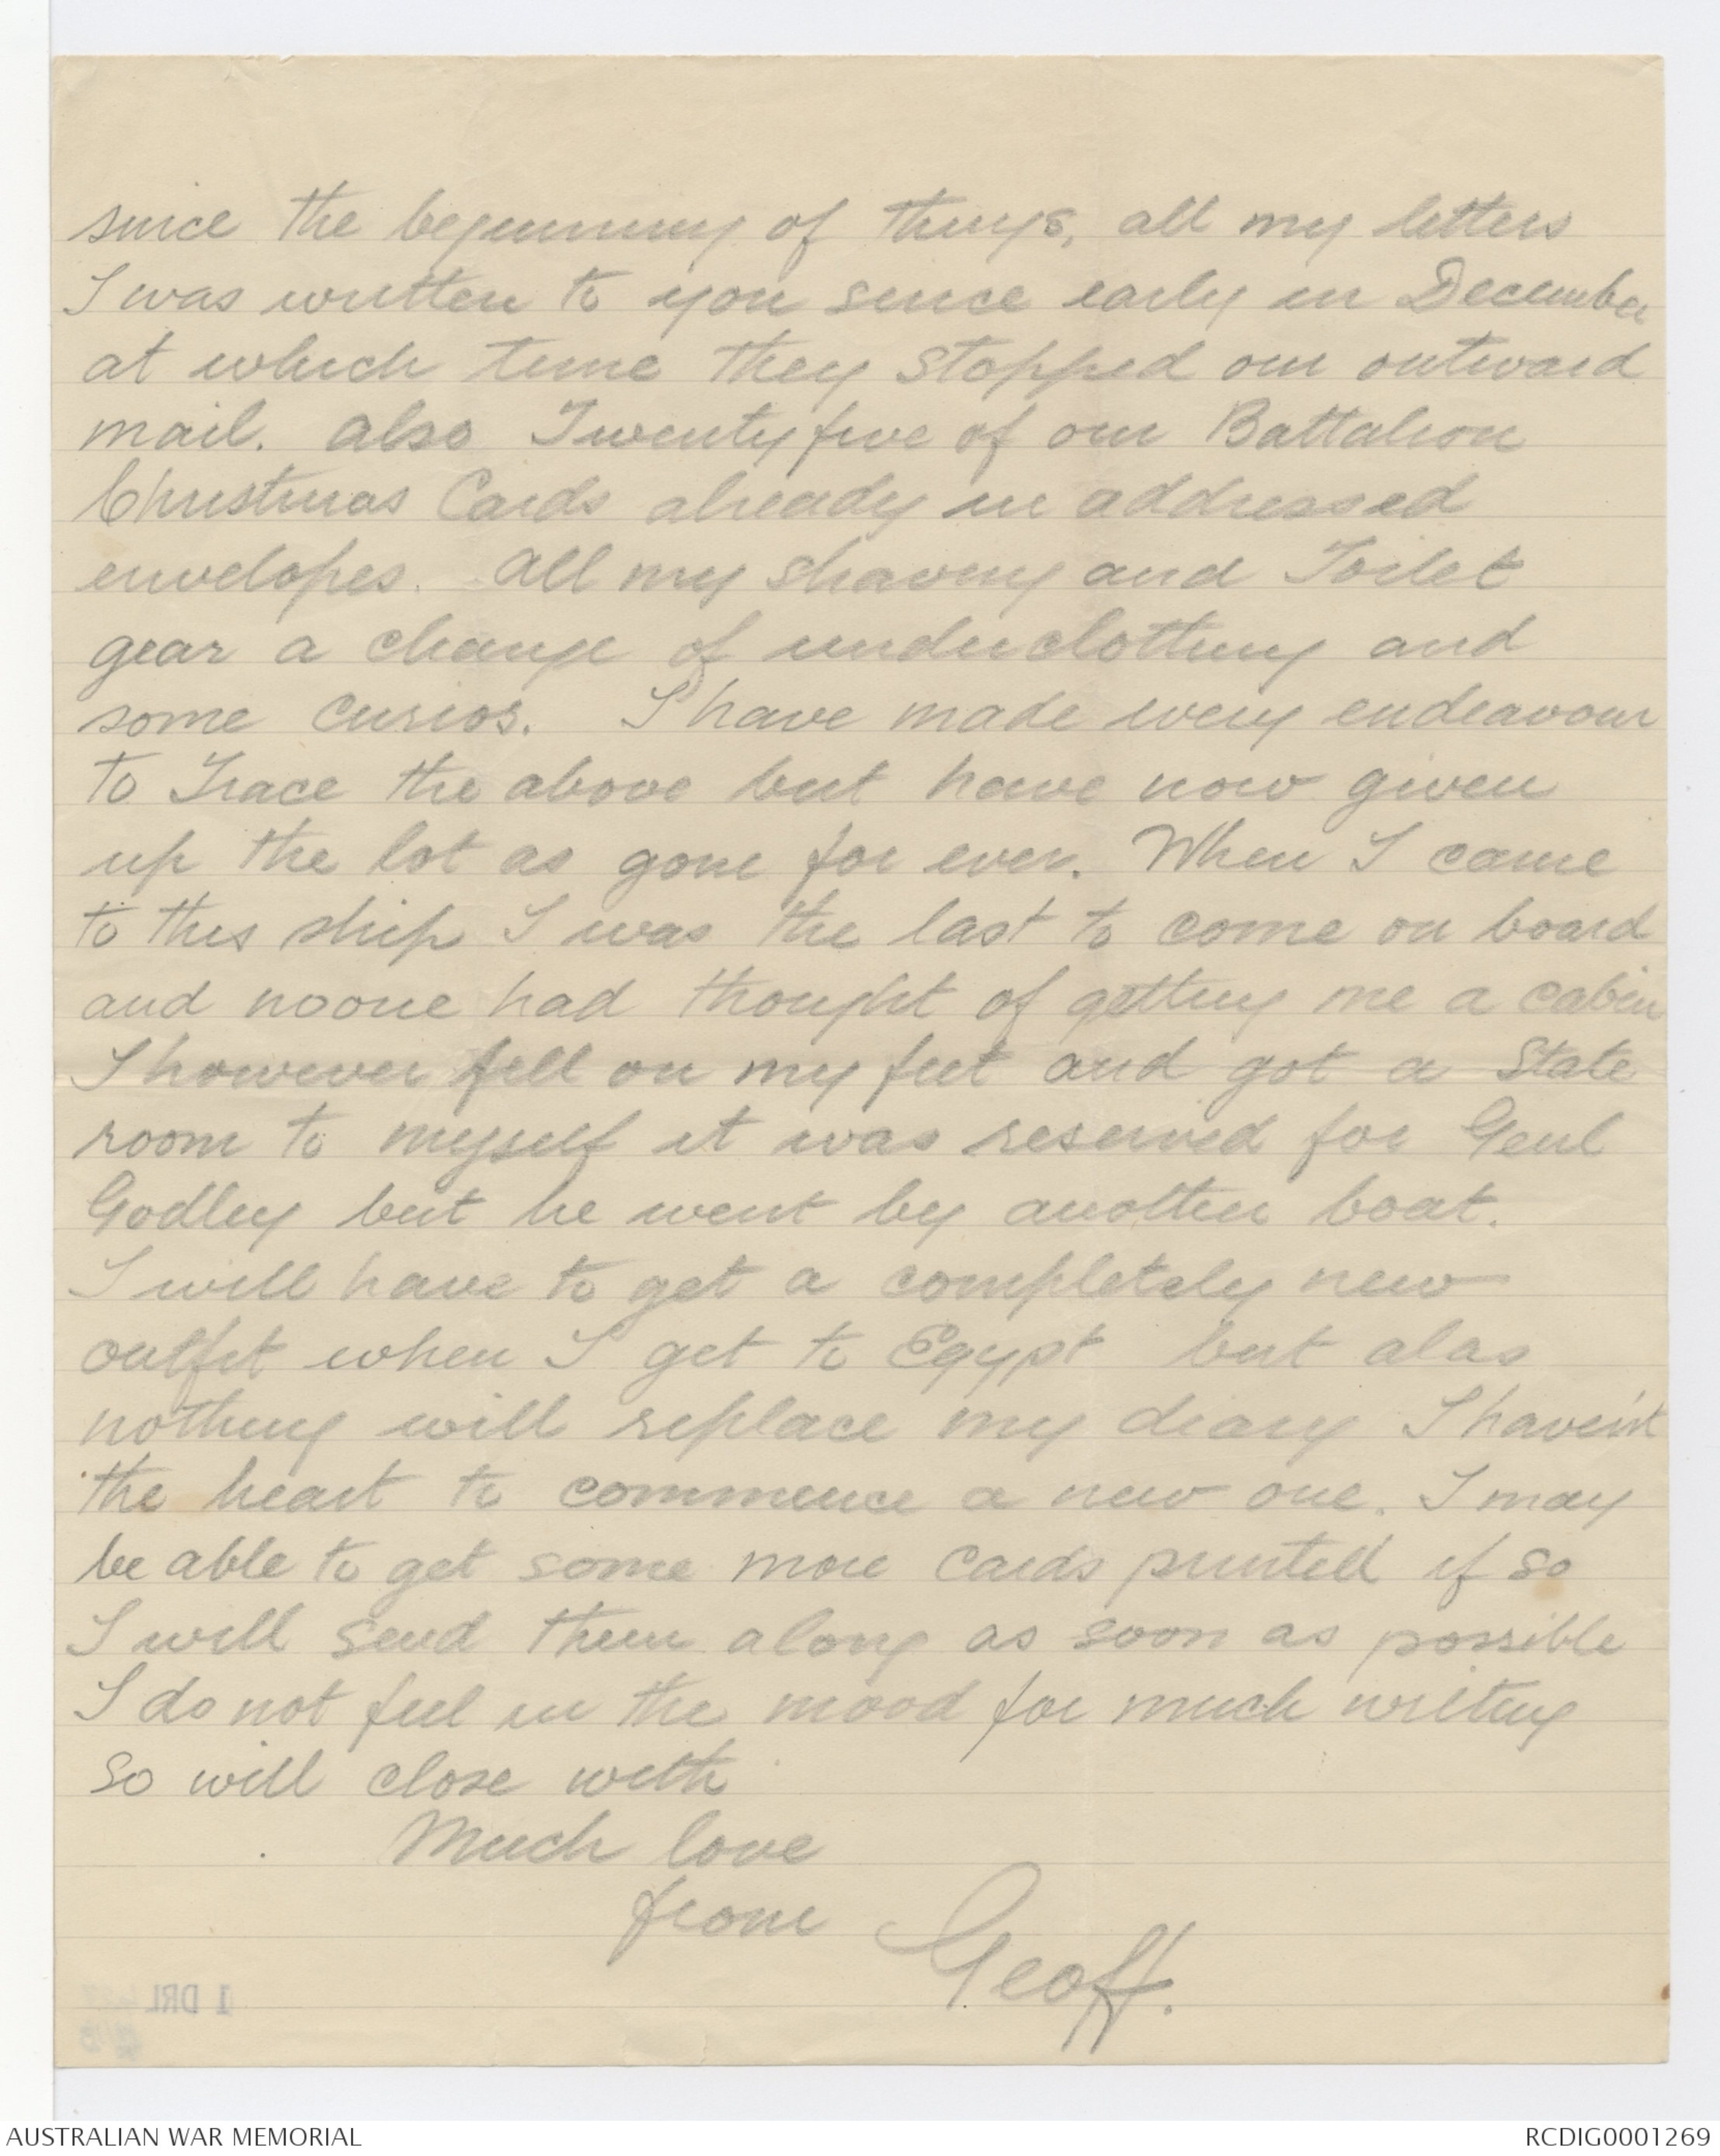 since the beginning of things, all my letters
I was written to you since early in December
at which time they stopped our outward
mail. also Twenty five of our Battalion
Christmas Cards already in addressed
envelopes. All my shaving and Toilet
gear a change of underclothing and
some curios. I have made every endeavour
to Trace the above but have now given
up the lot as gone for ever. When I came
to this ship I was the last to come on board
and noone had thought of getting me a cabin
I however fell on my feet and got a State
room to myself it was reserved for Genl
Godley but he went by another boat.
I will have to get a completely new
outfit when I get to Egypt but alas
nothing will replace my diary I have'nt
the heart to commence a new one. I may
be able to get some more cards printed if so
I will send them along as soon as possible
I do not feel in the mood for much writing
so will close with
Much love
from Geoff.
1 DRL
AUSTRALIAN WAR MEMORIAL
RCDIG0001269